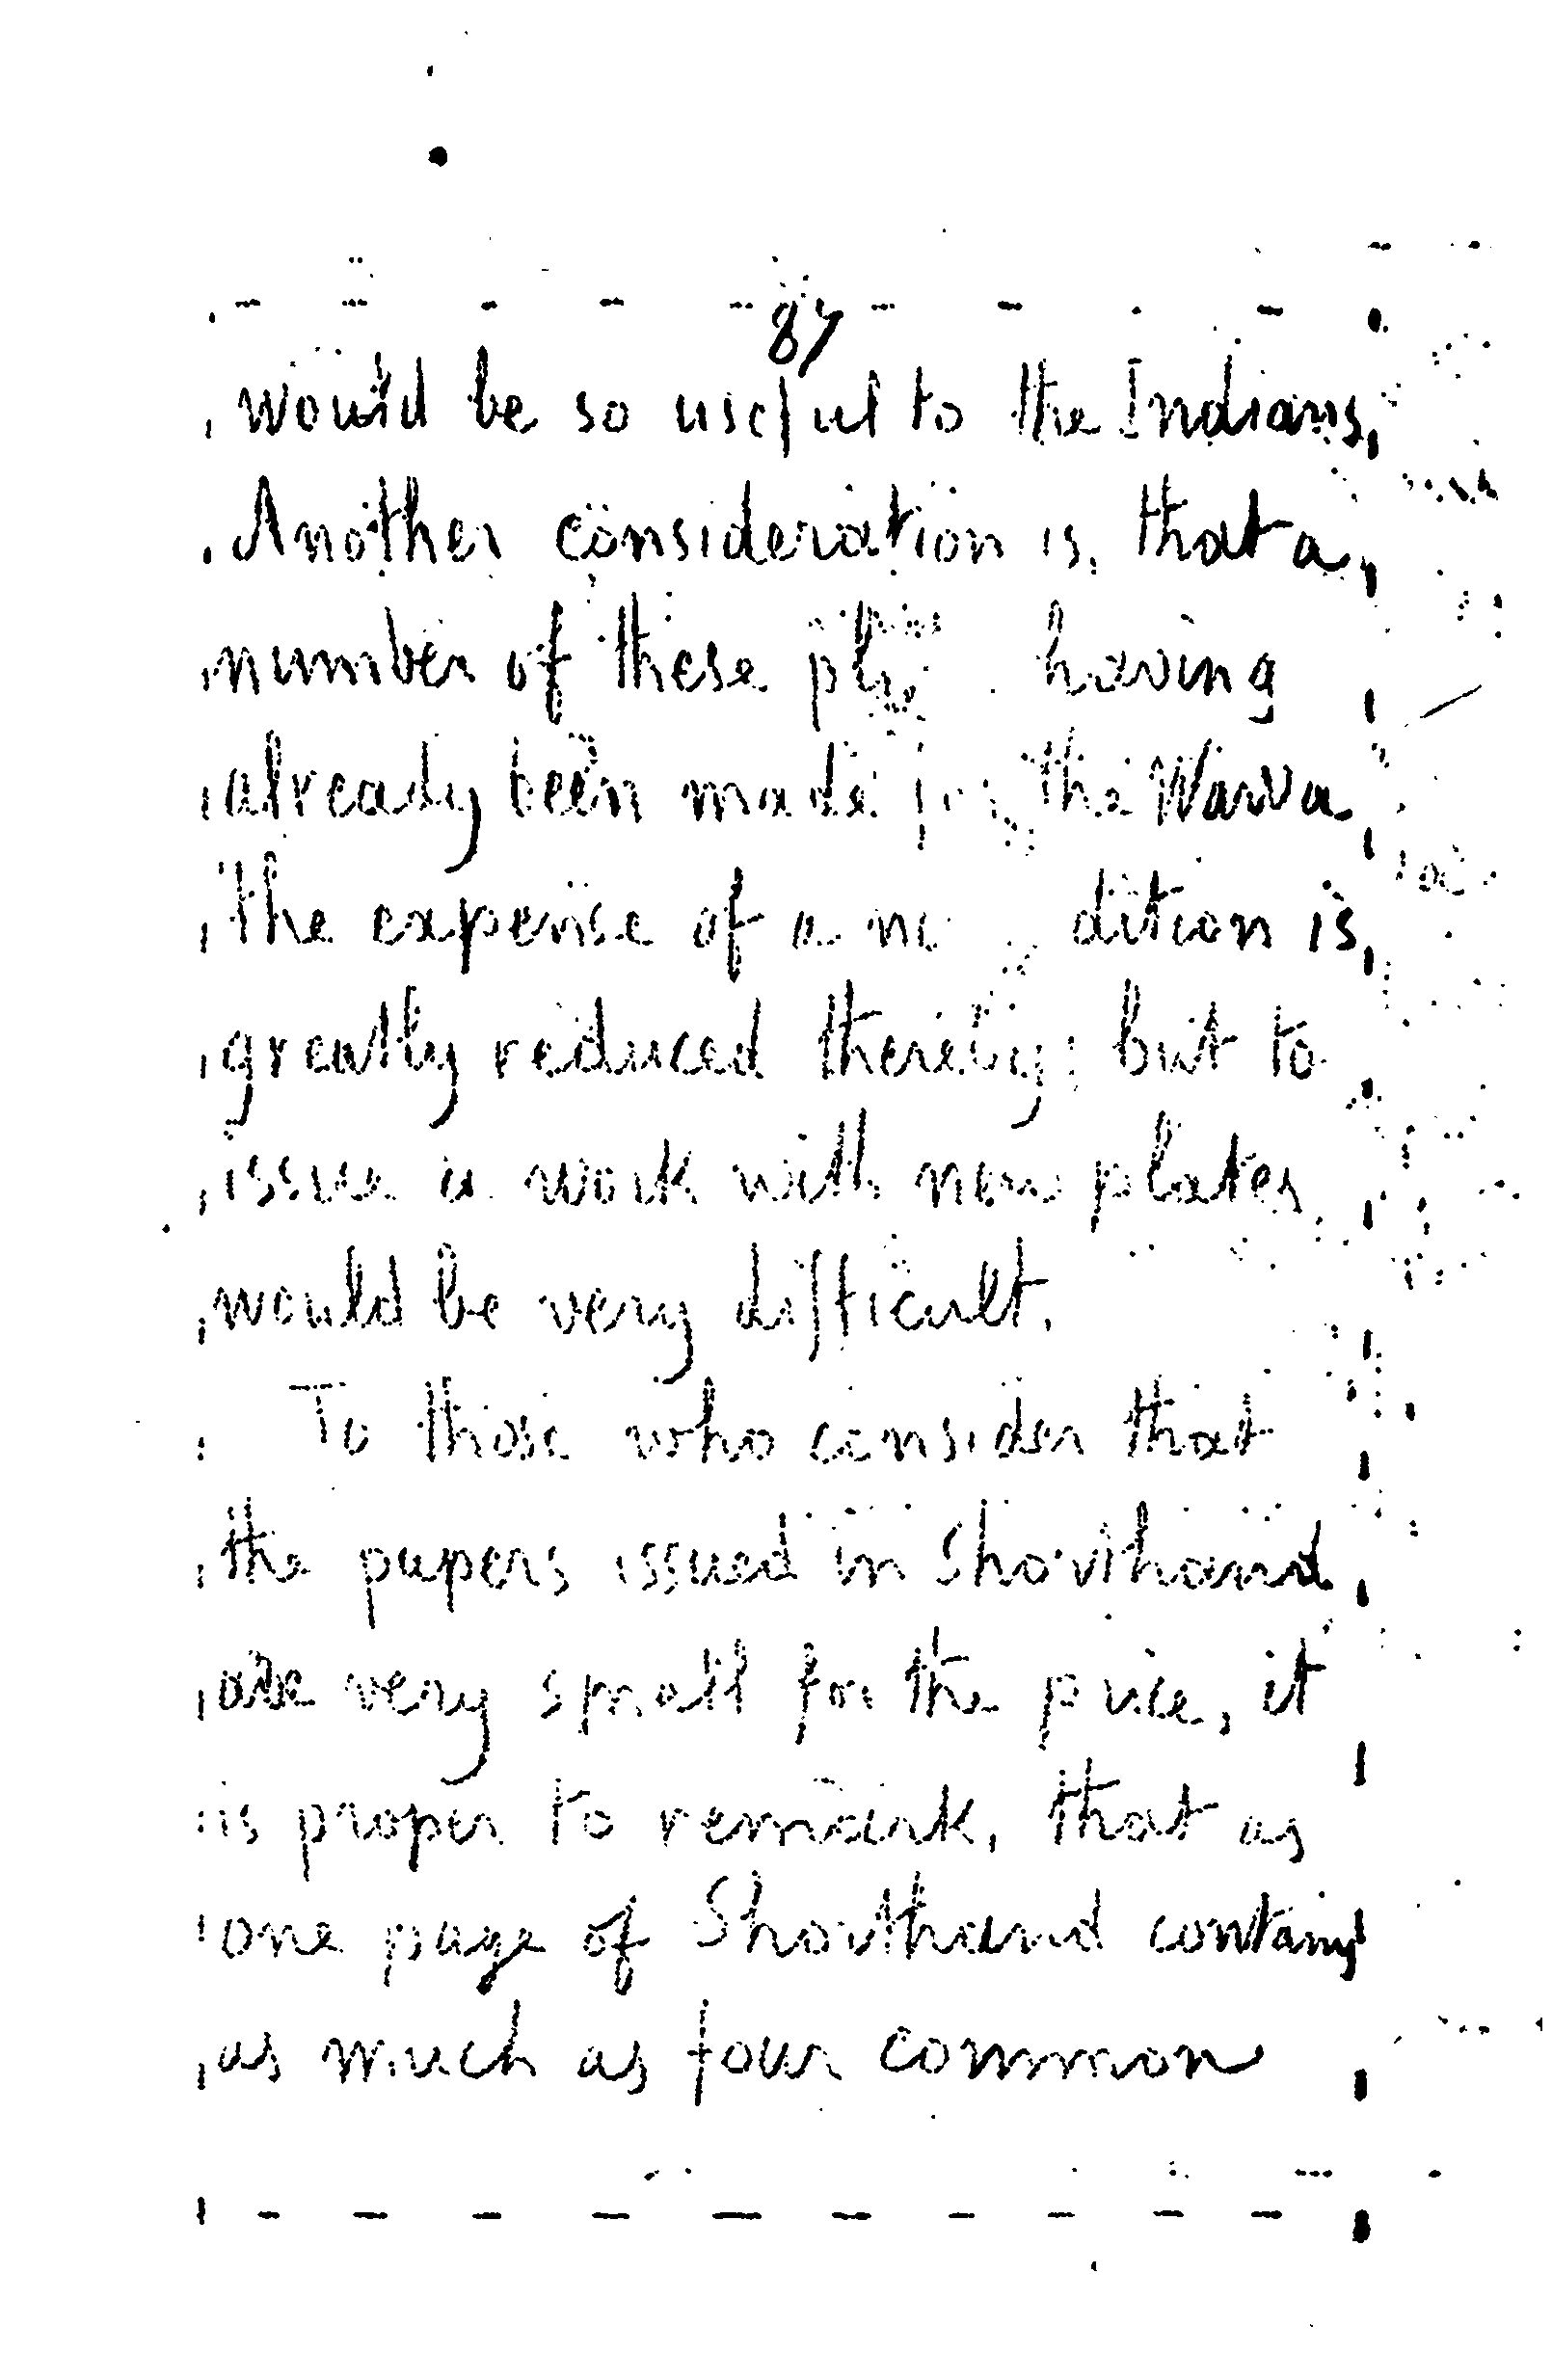 87
would be so useful to the Indians,
Another consideration is, that a
number of these having
already been made for the Wawa
the expense of a dition is
greatly reduced thereby; but to
issue a work with new plates
would be very difficult.
To those who consider that
the papers issued in Shorthand
are very small for the price, it
is proper to remark, that as
one page of Shorthand contains
as much as four common